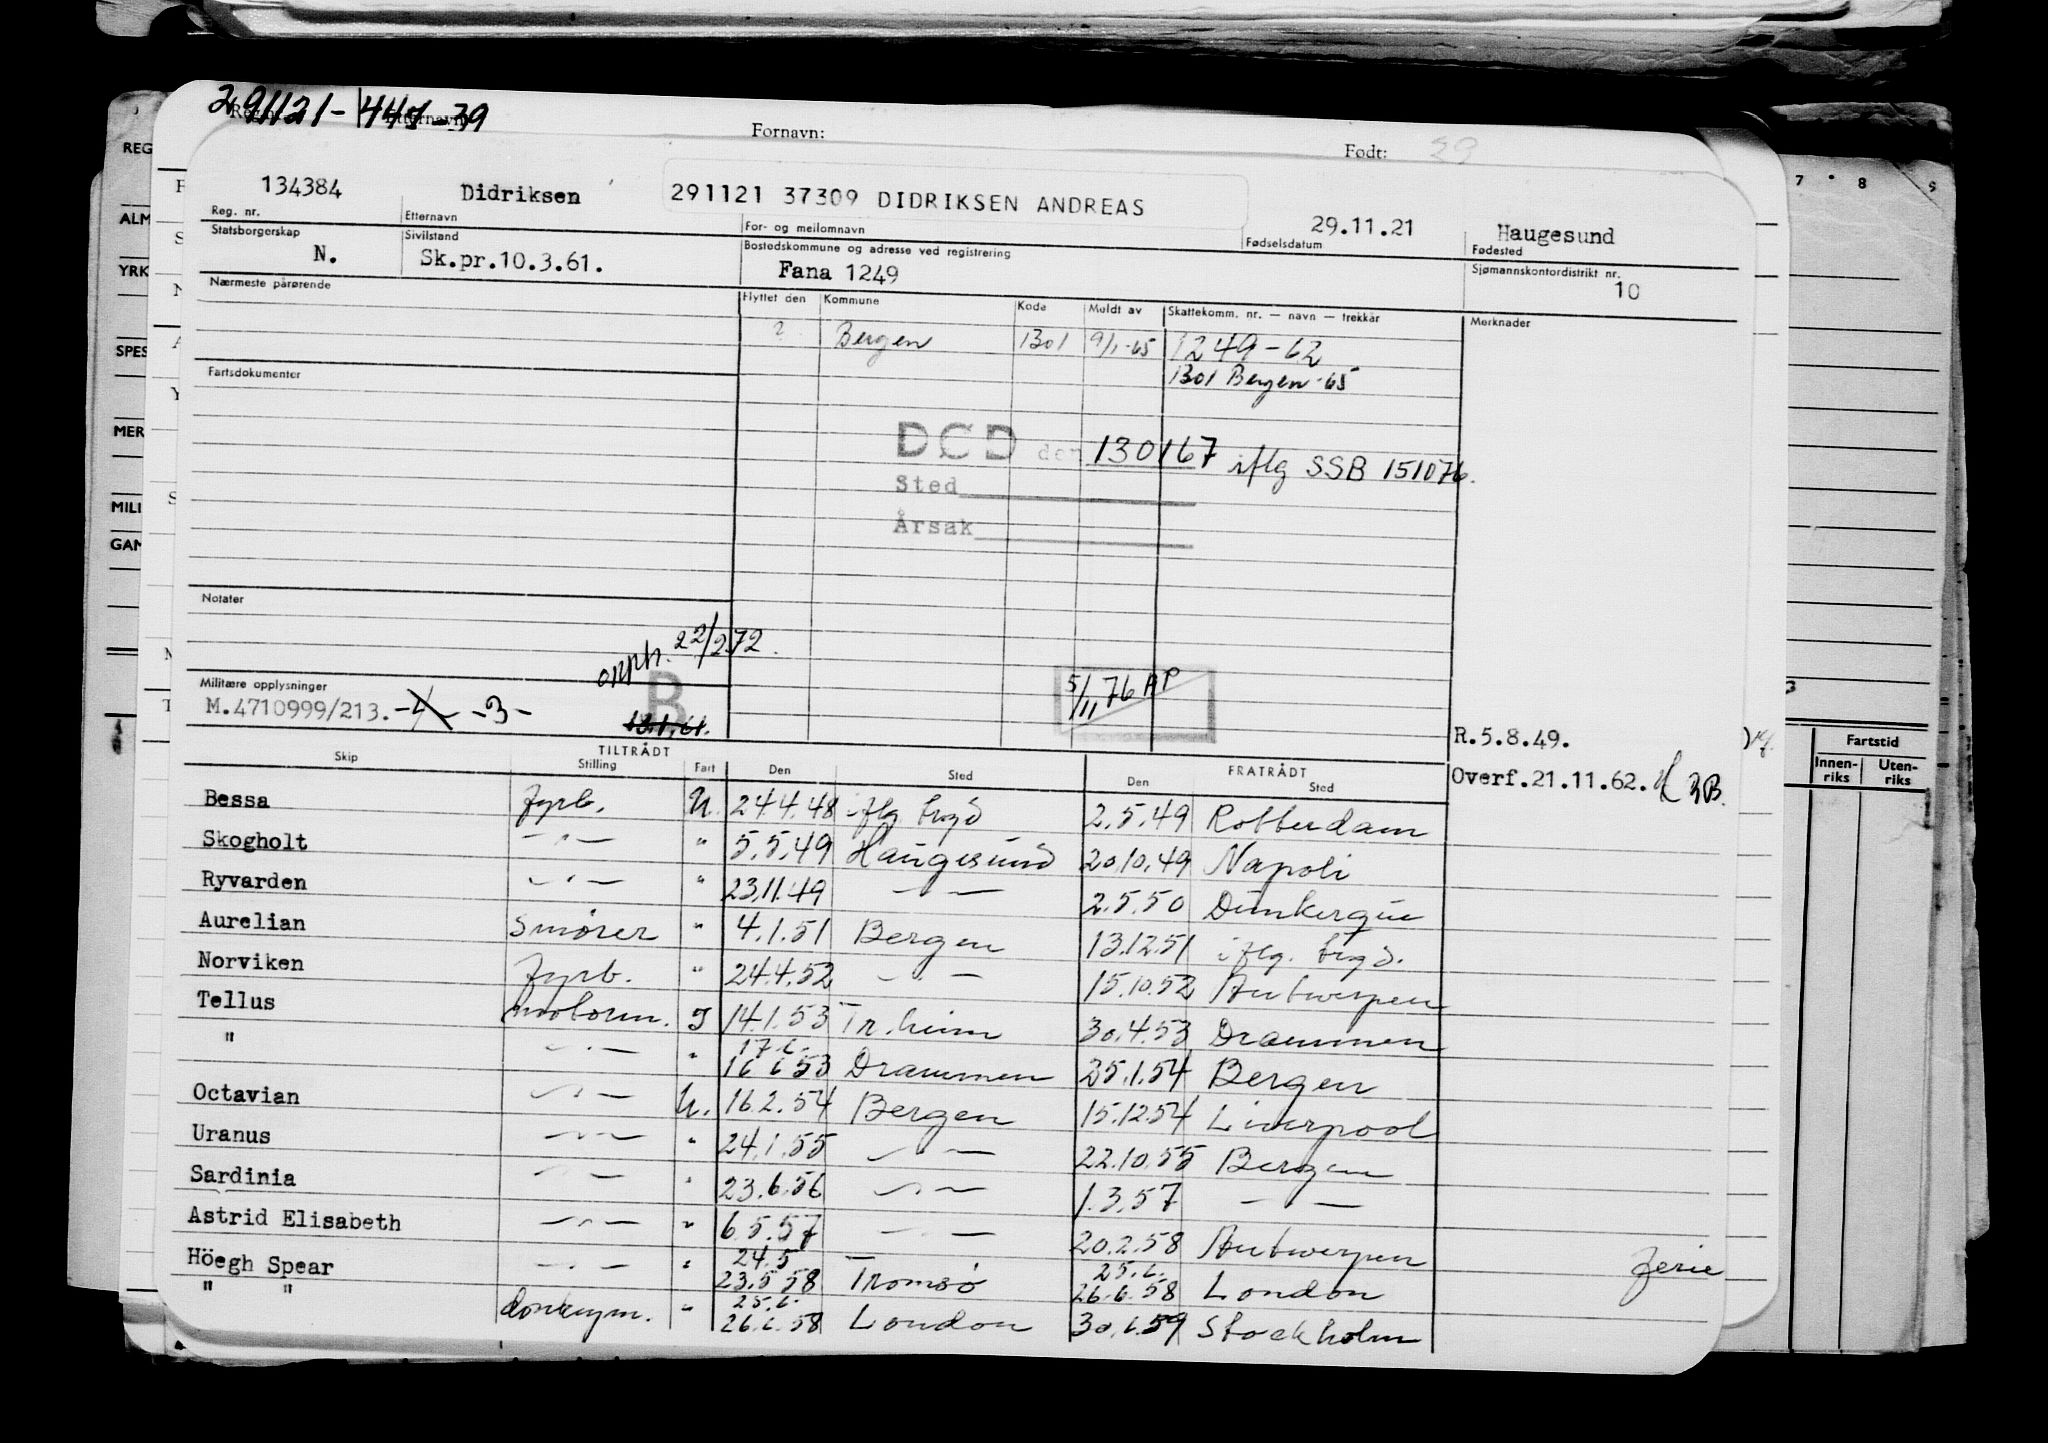 291121-
Fornavn:
Født:
134384 Didriksen 291121 37309 DIDRIKSEN ANDREAS 29.11.21 Haugesund
Reg. nr. Etternavn For- og mellomnavn Fødselsdatum Fødested
Statsborgerskap Sivilstand Bostedskommune og adresse ved registrering Sjømannskontordistrikt nr.
N. Sk.pr.10.3.61. Fana 1249 10
Nærmeste pårørende Flyttet den Kommune Kode Meldt av Skattekomm. nr. — navn — trekkår Merknader
? Bergen 1301 9/1-65 1249-62
1301 Bergen-65
Fartsdokumenter
DØD den 130167 iflg SSB 151076.
Sted
Årsak
Notater
opph. 22/2 72.
B
Militære opplysninger
M.4710999/213. -3-
5/11 76 AP
R.5.8.49.
Overf.21.11.62. 3B.
Skip TILTRÅDT Stilling Fart Den Sted FRATRÅDT Den Sted
Bessa fyrb. U. 24.4.48 iflg. 2.5.49 Rotterdam
Skogholt — " — " 5.5.49 Haugesund 20.10.49 Napoli
Ryvarden — " — " 23.11.49 — " — 2.5.50 Dunkerque
Aurelian Smører " 4.1.51 Bergen 13.12.51 iflg.
Norviken fyrb. " 24.4.52 — " — 15.10.52 Antwerpen
Tellus motorm. I 14.1.53 Tr.heim 30.4.53 Drammen
17.6.
" — " — " 16.6.53 Drammen 25.1.54 Bergen
Octavian — " — U. 16.2.54 Bergen 15.12.54 Liverpool
Uranus — " — " 24.1.55 — " — 22.10.55 Bergen
Sardinia — " — " 23.6.56 — " — 1.3.57 — " —
Astrid Elisabeth — " — " 6.5.57 — " — 20.2.58 Antwerpen
24.5 25.6.
Höegh Spear — " — " 23.5.58 Tromsø 26.6.58 London
25.6.
" " donkeym. " 26.6.58 London 30.6.59 Stockholm
Ferie
REG
ALM
YRK
SPES
MER
MILI
GAN
7 8 9
Fartstid
Innen-
riks
Uten-
riks